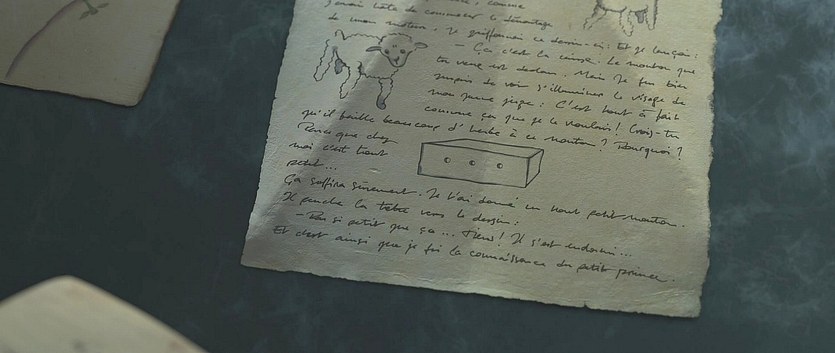 , comme
j'avais hâte de commencer le démontage
de mon moteur, je griffonnai ce dessin-ci. Et je lançai :
– Ça c'est la caisse. Le mouton que
tu veux est dedans. Mais je fus bien
surpris de voir s'illuminer le visage de
mon jeune juge : C'est tout à fait
comme ça que je le voulais ! Crois-tu
qu'il faille beaucoup d'herbe à ce mouton ? Pourquoi ?
Parce que chez
moi c'est tout
petit...
Ça suffira sûrement. Je t'ai donné un tout petit mouton.
Il pencha la tête vers le dessin :
– Pas si petit que ça... Tiens ! Il s'est endormi...
Et c'est ainsi que je fis la connaissance du petit prince.